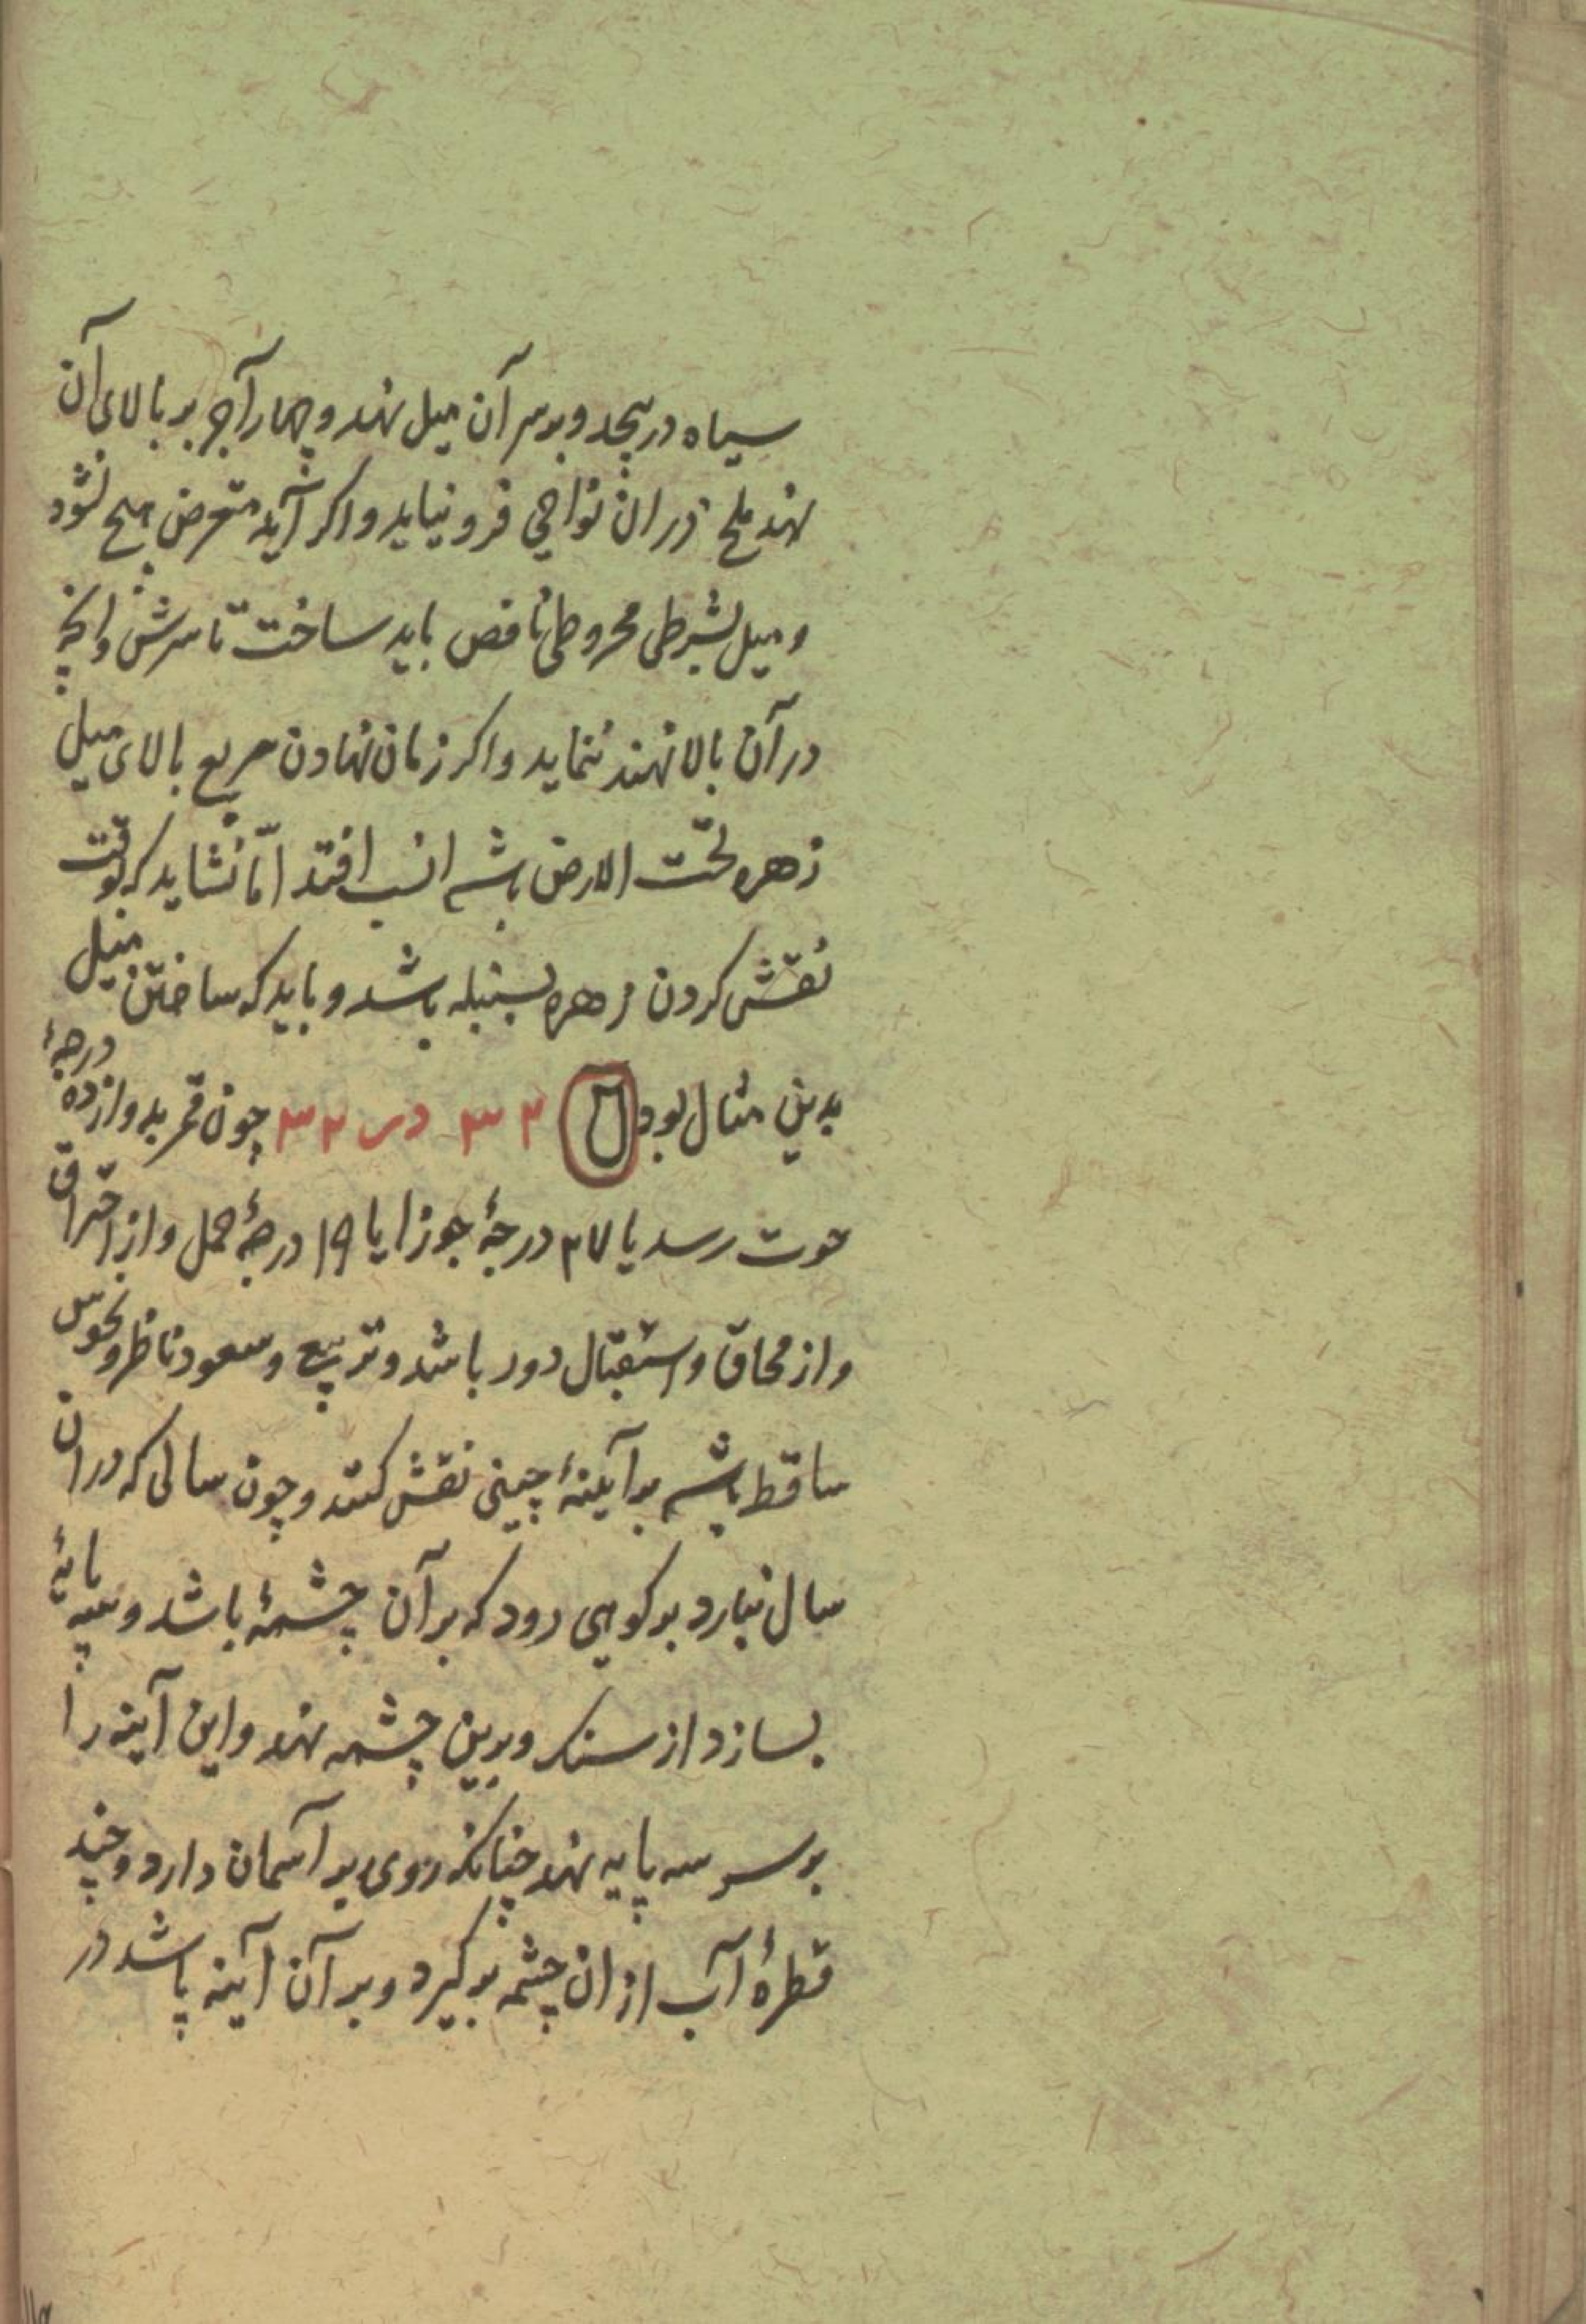 سیاه در پیچد و بر سر آن میل نهد و چهار آجر بر بالای آن
نهد ملخ در ان نواحی فرو نیاید و اکر آید متعرض هیچ نشود
و میل بشرطی مخروطی ناقص باید ساخت تا سرش و انچه
در آن بالا نهند ننماید و اکر زمان نهادن مربع بالای میل
زهره تحت الارض باشد انسب افتد امّا نشاید که بوقت
نقش کردن زهره بسنبله باشد و باید که ساختن میل
بدین مثال بود ۲ ۳ ۳ در ۳۲ چون قمر بدوازده درجهٔ
حوت رسد یا ۲۷ درجهٔ جوزا یا ۱۹ درجهٔ حمل و از احتراق
و از محاق و استقبال دور باشد و تربیع و سعود ناظر و نحوس
ساقط باشد بر آینهٔ چینی نقش کنند و چون سالی که در ان
سال نبارد بر کوهی رود که بر آن چشمهٔ باشد و سه پایهٔ
بسازد از سنک و برین چشمه نهد و این آینه را
بر سر سه پایه نهد چنانکه روی بر آسمان دارد و چند
قطرهٔ آب از ان چشمه بر کیرد و بر آن آینه پاشد در